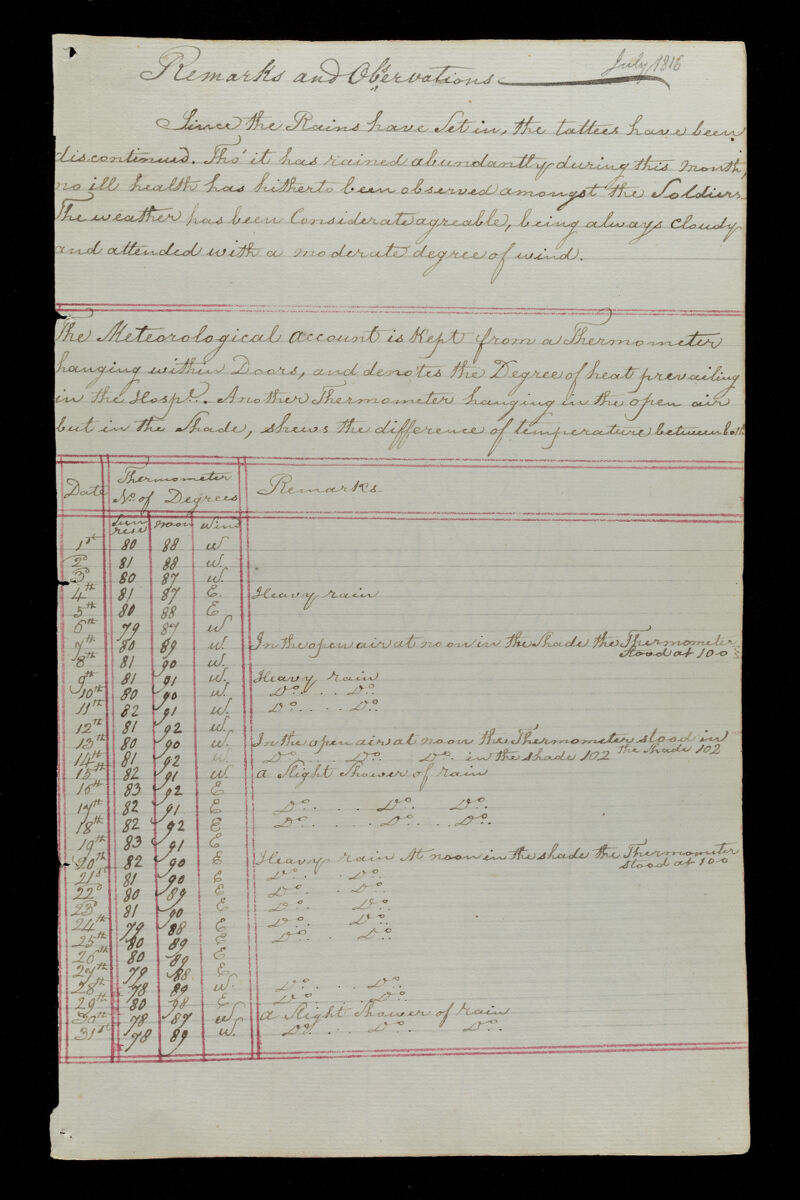 July 1816
Remarks and Observations
Since the Rains have Set in, the tattees have been
discontinued. Tho' it has rained abundantly during this Month,
no ill health has hitherto been observed amongst the Soldiers
The weather has been Considerate agreable, being always Cloudy
and attended with a moderate degree of wind.
The Meteorological account is Kept from a Thermometer
hanging within Doors, and denotes the Degree of heat prevailing
in the Hospl. Another Thermometer hanging in the open air
but in the Shade, shews the difference of temperature between both
Date Thermometer Remarks
No. of Degrees
Sun rise noon Wind
1st 80 88 W.
2d 81 88 W.
3d 80 87 W.
4th 81 87 E. Heavy rain
5th 80 88 E
6th 79 87 W
7th 80 89 W. In the open air at noon in the Shade the Thermometer
8th 81 90 W. stood at 100
9th 81 91 W. Heavy rain
10th 80 90 W. Do. . . . Do.
11th 82 91 W. Do. . . . Do.
12th 81 92 W.
13th 80 90 W. In the open air at noon the Thermometer stood in
the Shade 102
14th 81 92 W. Do. Do. Do. in the shade 102
15th 82 91 W. a Slight Shower of rain
16th 83 92 E
17th 82 91 E Do. . . . Do. Do.
18th 82 92 E Do. . . . Do. . . Do.
19th 83 91 E
20th 82 90 E Heavy rain At noon in the shade the Thermometer
stood at 100
21st 81 90 E Do. . . Do.
22d 80 89 E Do. . Do.
23d 81 90 E Do. Do.
24th 79 88 E Do. Do.
25th 80 89 E Do. . Do.
26th 80 89 E
27th 79 88 E
28th 78 89 W. Do. . . Do.
29th 80 98 E Do. . . Do.
30th 78 87 W a Slight Shower of rain
31st 78 89 W. Do. . . . Do. Do.